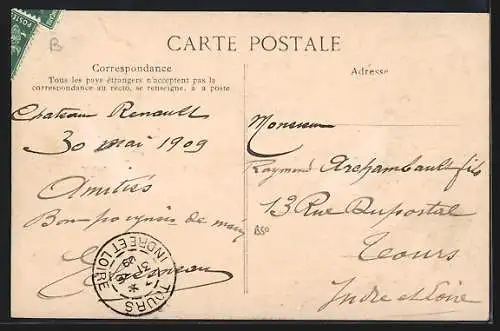 B
CARTE POSTALE
Correspondance
Tous les pays étrangers n'acceptent pas la
correspondance au recto, se renseigner à la poste
Chateau Renault
30 mai 1909
Amitiés
Bon de
TOURS
INDRE ET LOIRE
Adresse
Monsieur
Raymond Archambault fils
13 Rue Dupostal
B50
Tours
Indre et Loire